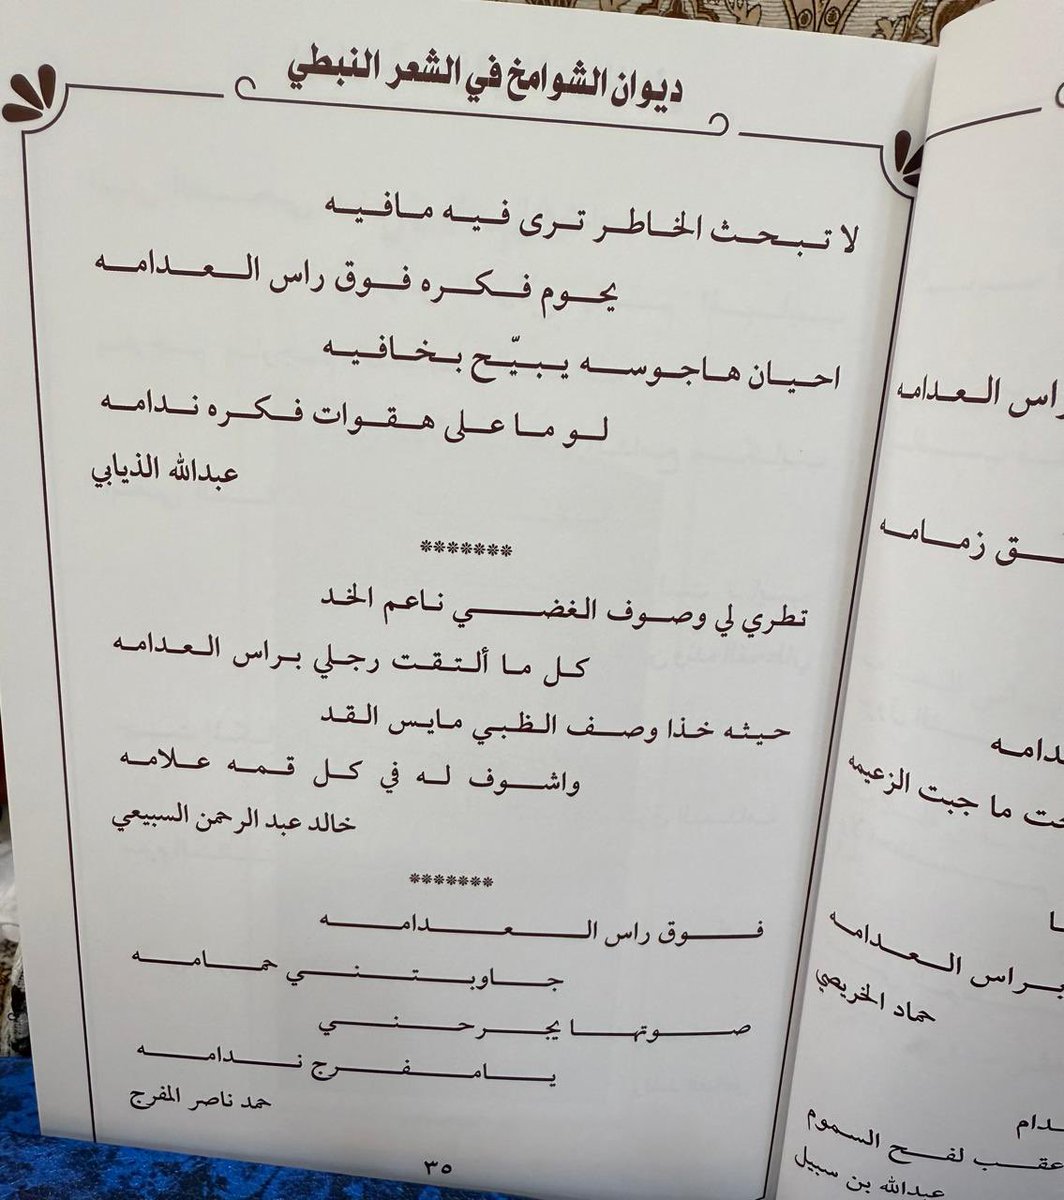 ديوان الشوامخ في الشعر النبطي
لا تبحث الخاطر ترى فيه مافيه
يحوم فكره فوق راس العدامه
احيان هاجوسه يبيّح بخافيه
لو ما على هقوات فكره ندامه
عبدالله الذيابي
*******
تطري لي وصوف الغضي ناعم الخد
كل ما ألتقت رجلي براس العدامه
حيثه خذا وصف الظبي مايس القد
واشوف له في كل قمه علامه
خالد عبد الرحمن السبيعي
*******
فوق راس العدامه
جاوبتني حمامه
صوتها يجرحني
يامفرج ندامه
حمد ناصر المفرج
٣٥
راس العدامه
زمامه
ما جبت الزعيمه
براس العدامه
حماد الخريصي
عقب لفح السموم
عبدالله بن سبيل